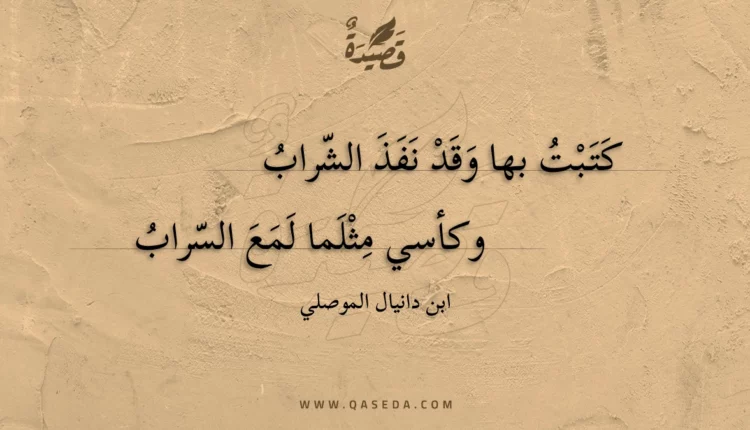 قَصِيْدَةٌ
كَتَبْتُ بها وَقَدْ نَفَذَ الشّرابُ
وكأسي مِثْلَما لَمَعَ السّرابُ
ابن دانيال الموصلي
WWW.QASEDA.COM